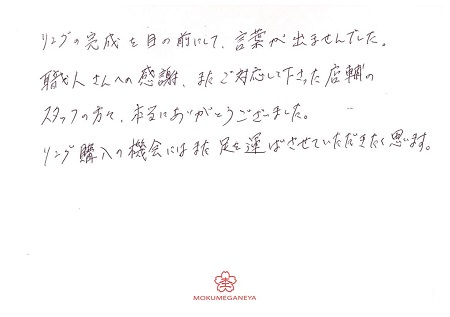 リングの完成を目の前にして、言葉が出ませんでした。
職人さんへの感謝、またご対応して下さった店舗の
スタッフの方々、本当にありがとうございました。
リング購入の機会にはまた足を運ばさせていただきたく思います。
MOKUMEGANEYA